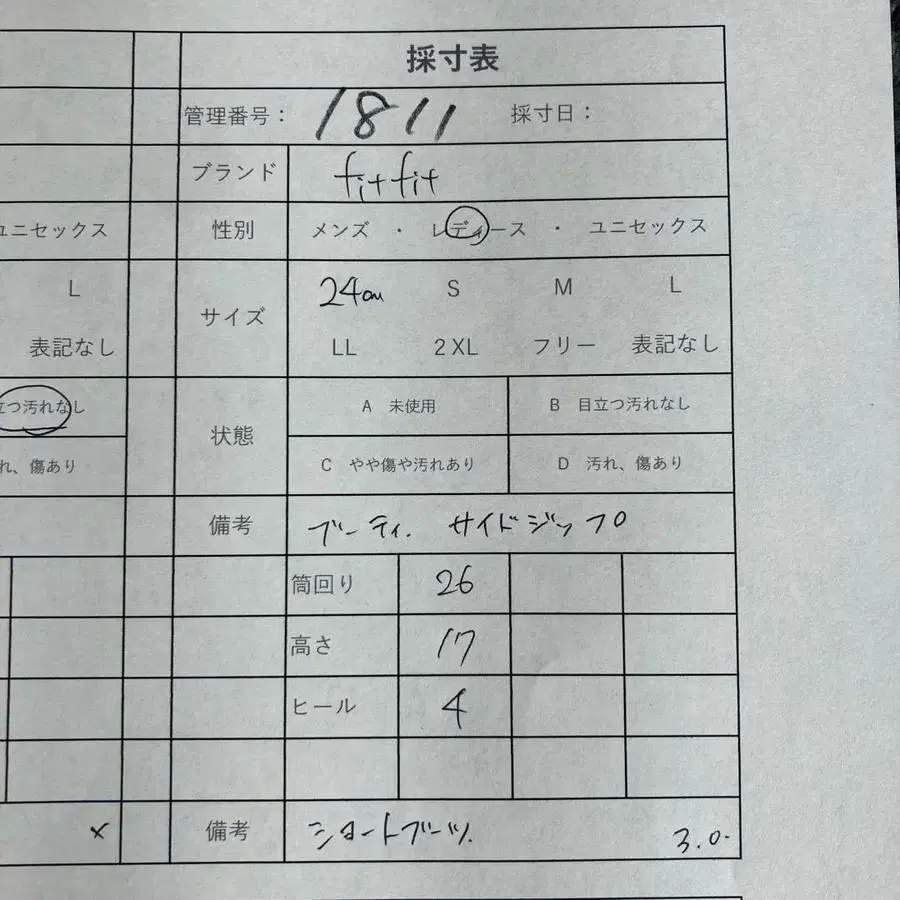 採寸表
管理番号: 1811 採寸日:
ブランド fitfit
ユニセックス 性別 メンズ ・ レディース ・ ユニセックス
L サイズ 24cm S M L
表記なし LL 2XL フリー 表記なし
立つ汚れなし 状態 A 未使用 B 目立つ汚れなし
れ、傷あり C やや傷や汚れあり D 汚れ、傷あり
備考 ブーティ. サイドジップ
筒回り 26
高さ 17
ヒール 4
× 備考 ショートブーツ. 3.0